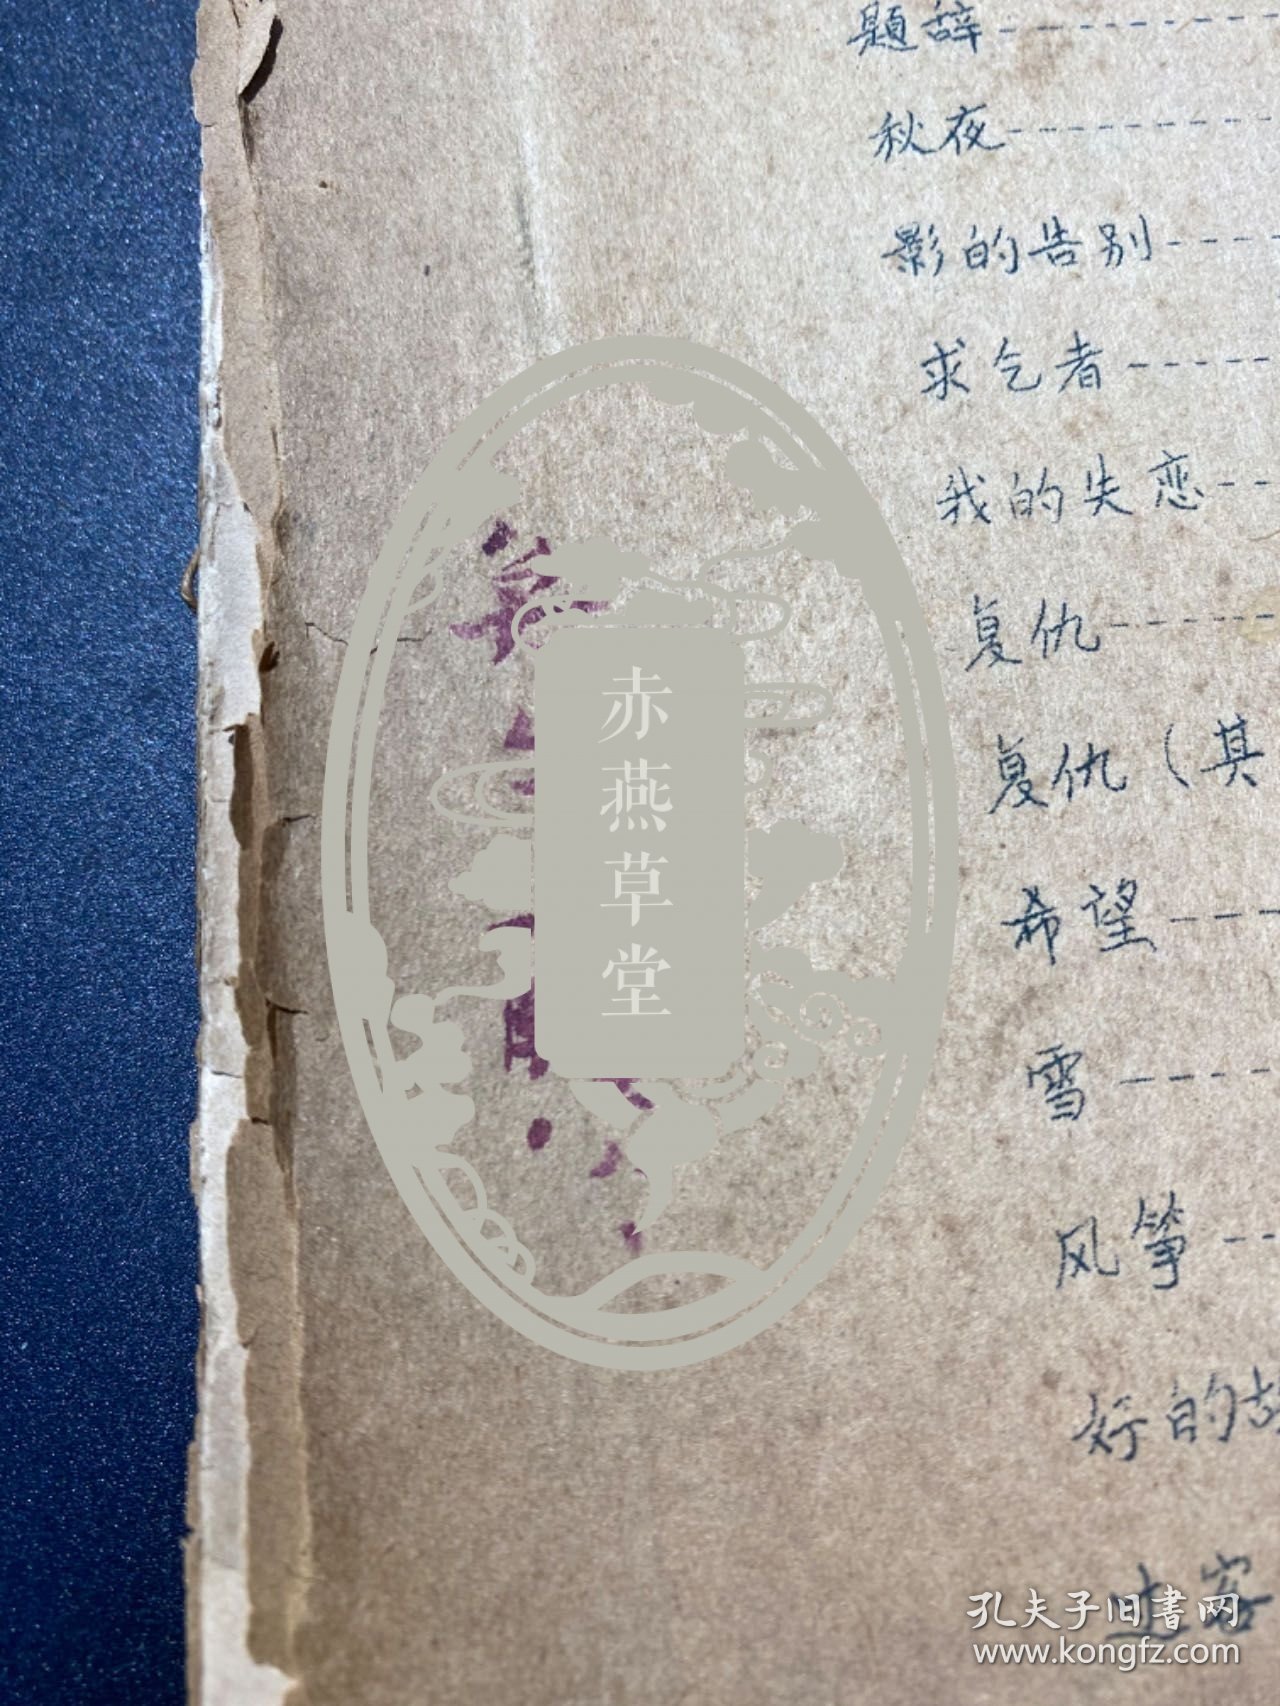 题辞
秋夜
影的告别
求乞者
我的失恋
复仇
复仇（其
希望
雪
风筝
好的故
过客
赤燕草堂
孔夫子旧書网
www.kongfz.com